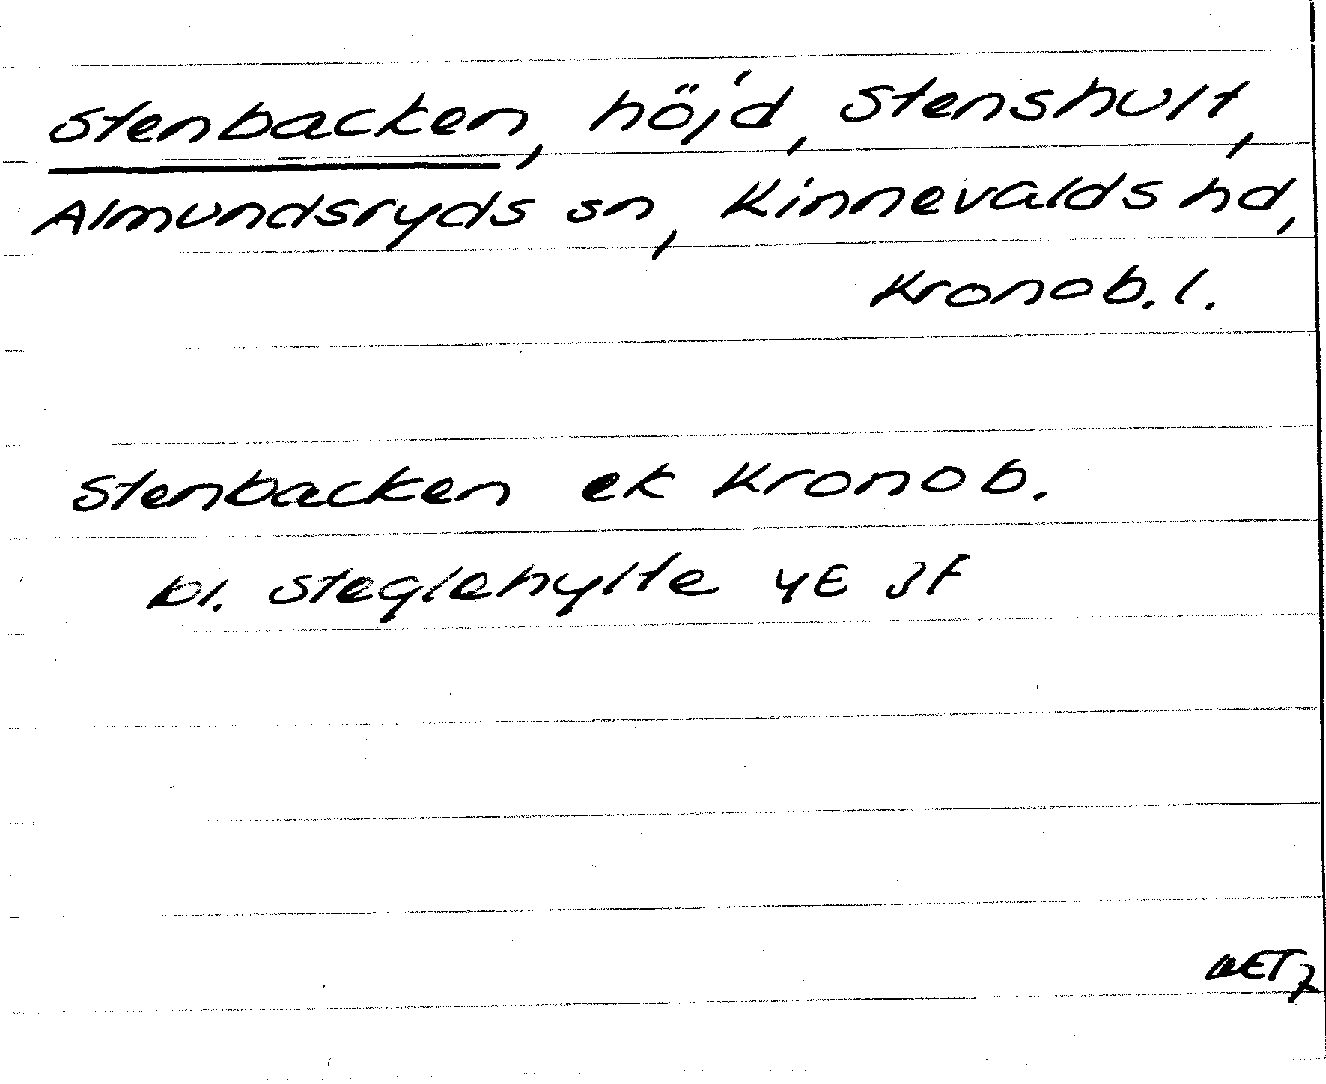 Stenbacken, höjd, Stenshult,
Almundsryds sn, Kinnevalds hd,
Kronob. l.
Stenbacken ek Kronob.
bl. Steglehylte 4E 3f